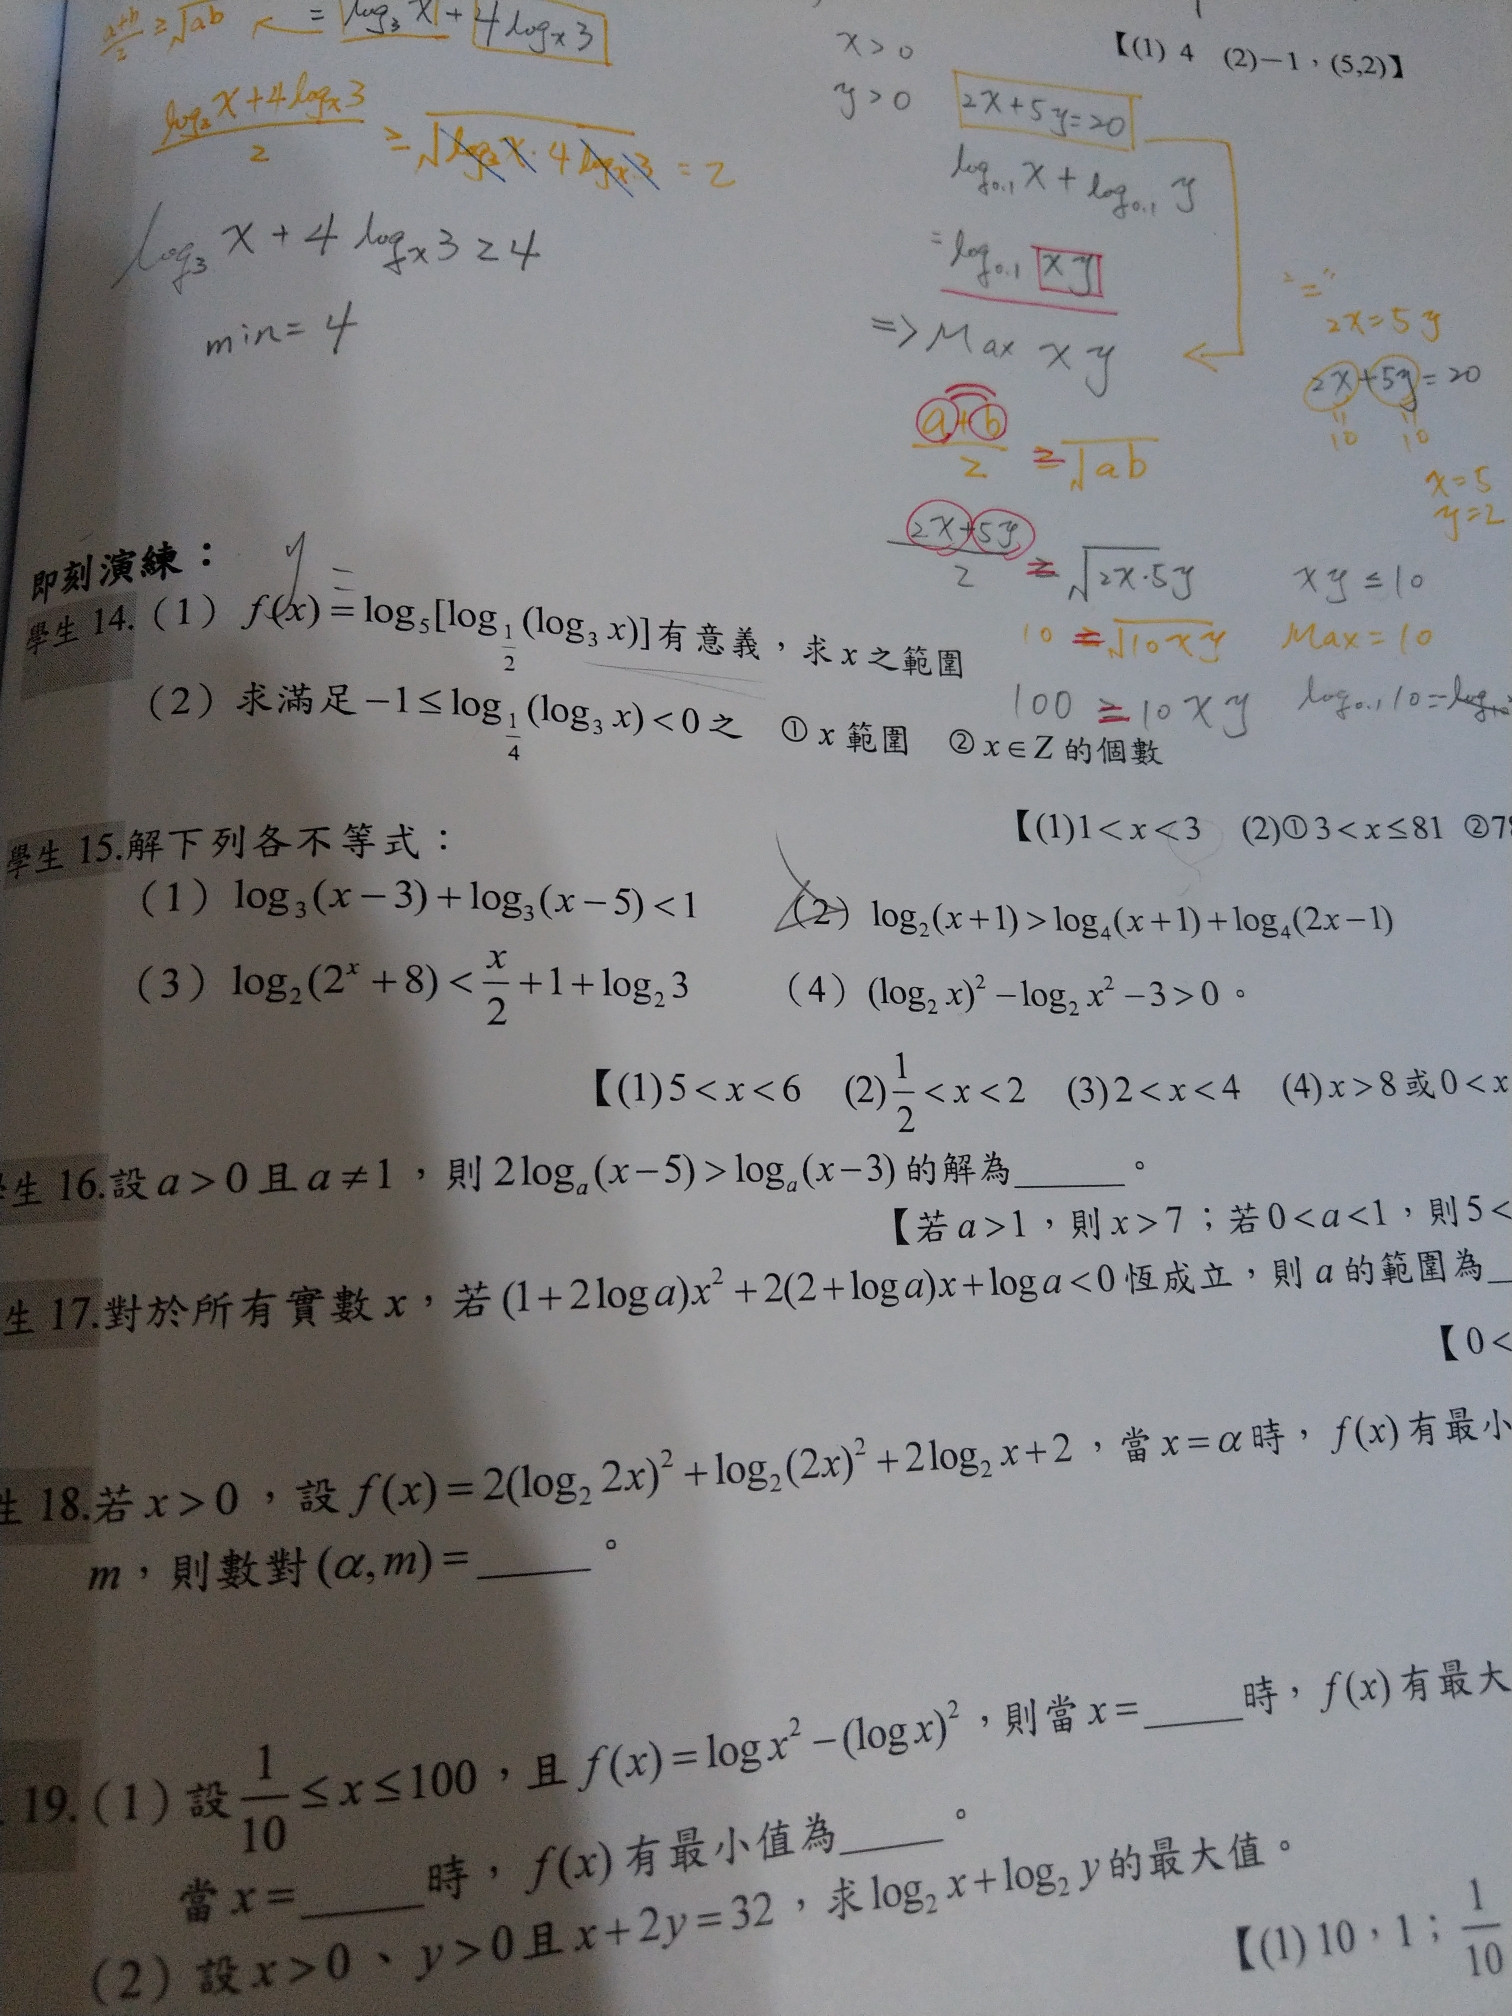 (a+b)/2 ≥ √ab ← = log₃ x + 4 logₓ 3
(log₃ x + 4 logₓ 3)/2 ≥ √(log₃ x · 4 logₓ 3) = 2
log₃ x + 4 logₓ 3 ≥ 4
min = 4
【(1) 4 (2)−1，(5,2)】
x > 0
y > 0
2x + 5y = 20
log₀.₁ x + log₀.₁ y
= log₀.₁ xy
=> Max xy
(a+b)/2 ≥ √ab
(2x+5y)/2 ≥ √(2x·5y)
10 ≥ √(10xy)
100 ≥ 10xy
"="
2x = 5y
2x + 5y = 20
10 10
x = 5
y = 2
xy ≤ 10
Max = 10
log₀.₁ 10 =
即刻演練：
y =
學生 14.（1）f(x) = log₅[log_{1/2}(log₃ x)]有意義，求 x 之範圍
（2）求滿足 −1 ≤ log_{1/4}(log₃ x) < 0 之 ① x 範圍 ② x ∈ Z 的個數
【(1)1 < x < 3 (2)① 3 < x ≤ 81 ②78
學生 15.解下列各不等式：
（1）log₃(x−3) + log₃(x−5) < 1 （2）log₂(x+1) > log₄(x+1) + log₄(2x−1)
（3）log₂(2ˣ + 8) < x/2 + 1 + log₂ 3 （4）(log₂ x)² − log₂ x² − 3 > 0。
【(1)5 < x < 6 (2)1/2 < x < 2 (3)2 < x < 4 (4)x > 8 或 0 < x
學生 16.設 a > 0 且 a ≠ 1，則 2logₐ(x−5) > logₐ(x−3) 的解為______。
【若 a > 1，則 x > 7；若 0 < a < 1，則 5 <
生 17.對於所有實數 x，若 (1+2log a)x² + 2(2+log a)x + log a < 0 恆成立，則 a 的範圍為_
【0 <
生 18.若 x > 0，設 f(x) = 2(log₂ 2x)² + log₂(2x)² + 2log₂ x + 2，當 x = α 時，f(x) 有最小
m，則數對 (α, m) = ______。
19.（1）設 1/10 ≤ x ≤ 100，且 f(x) = log x² − (log x)²，則當 x = _____時，f(x) 有最大
當 x = ______時，f(x) 有最小值為_____。
（2）設 x > 0、y > 0 且 x + 2y = 32，求 log₂ x + log₂ y 的最大值。
【(1) 10，1；1/10